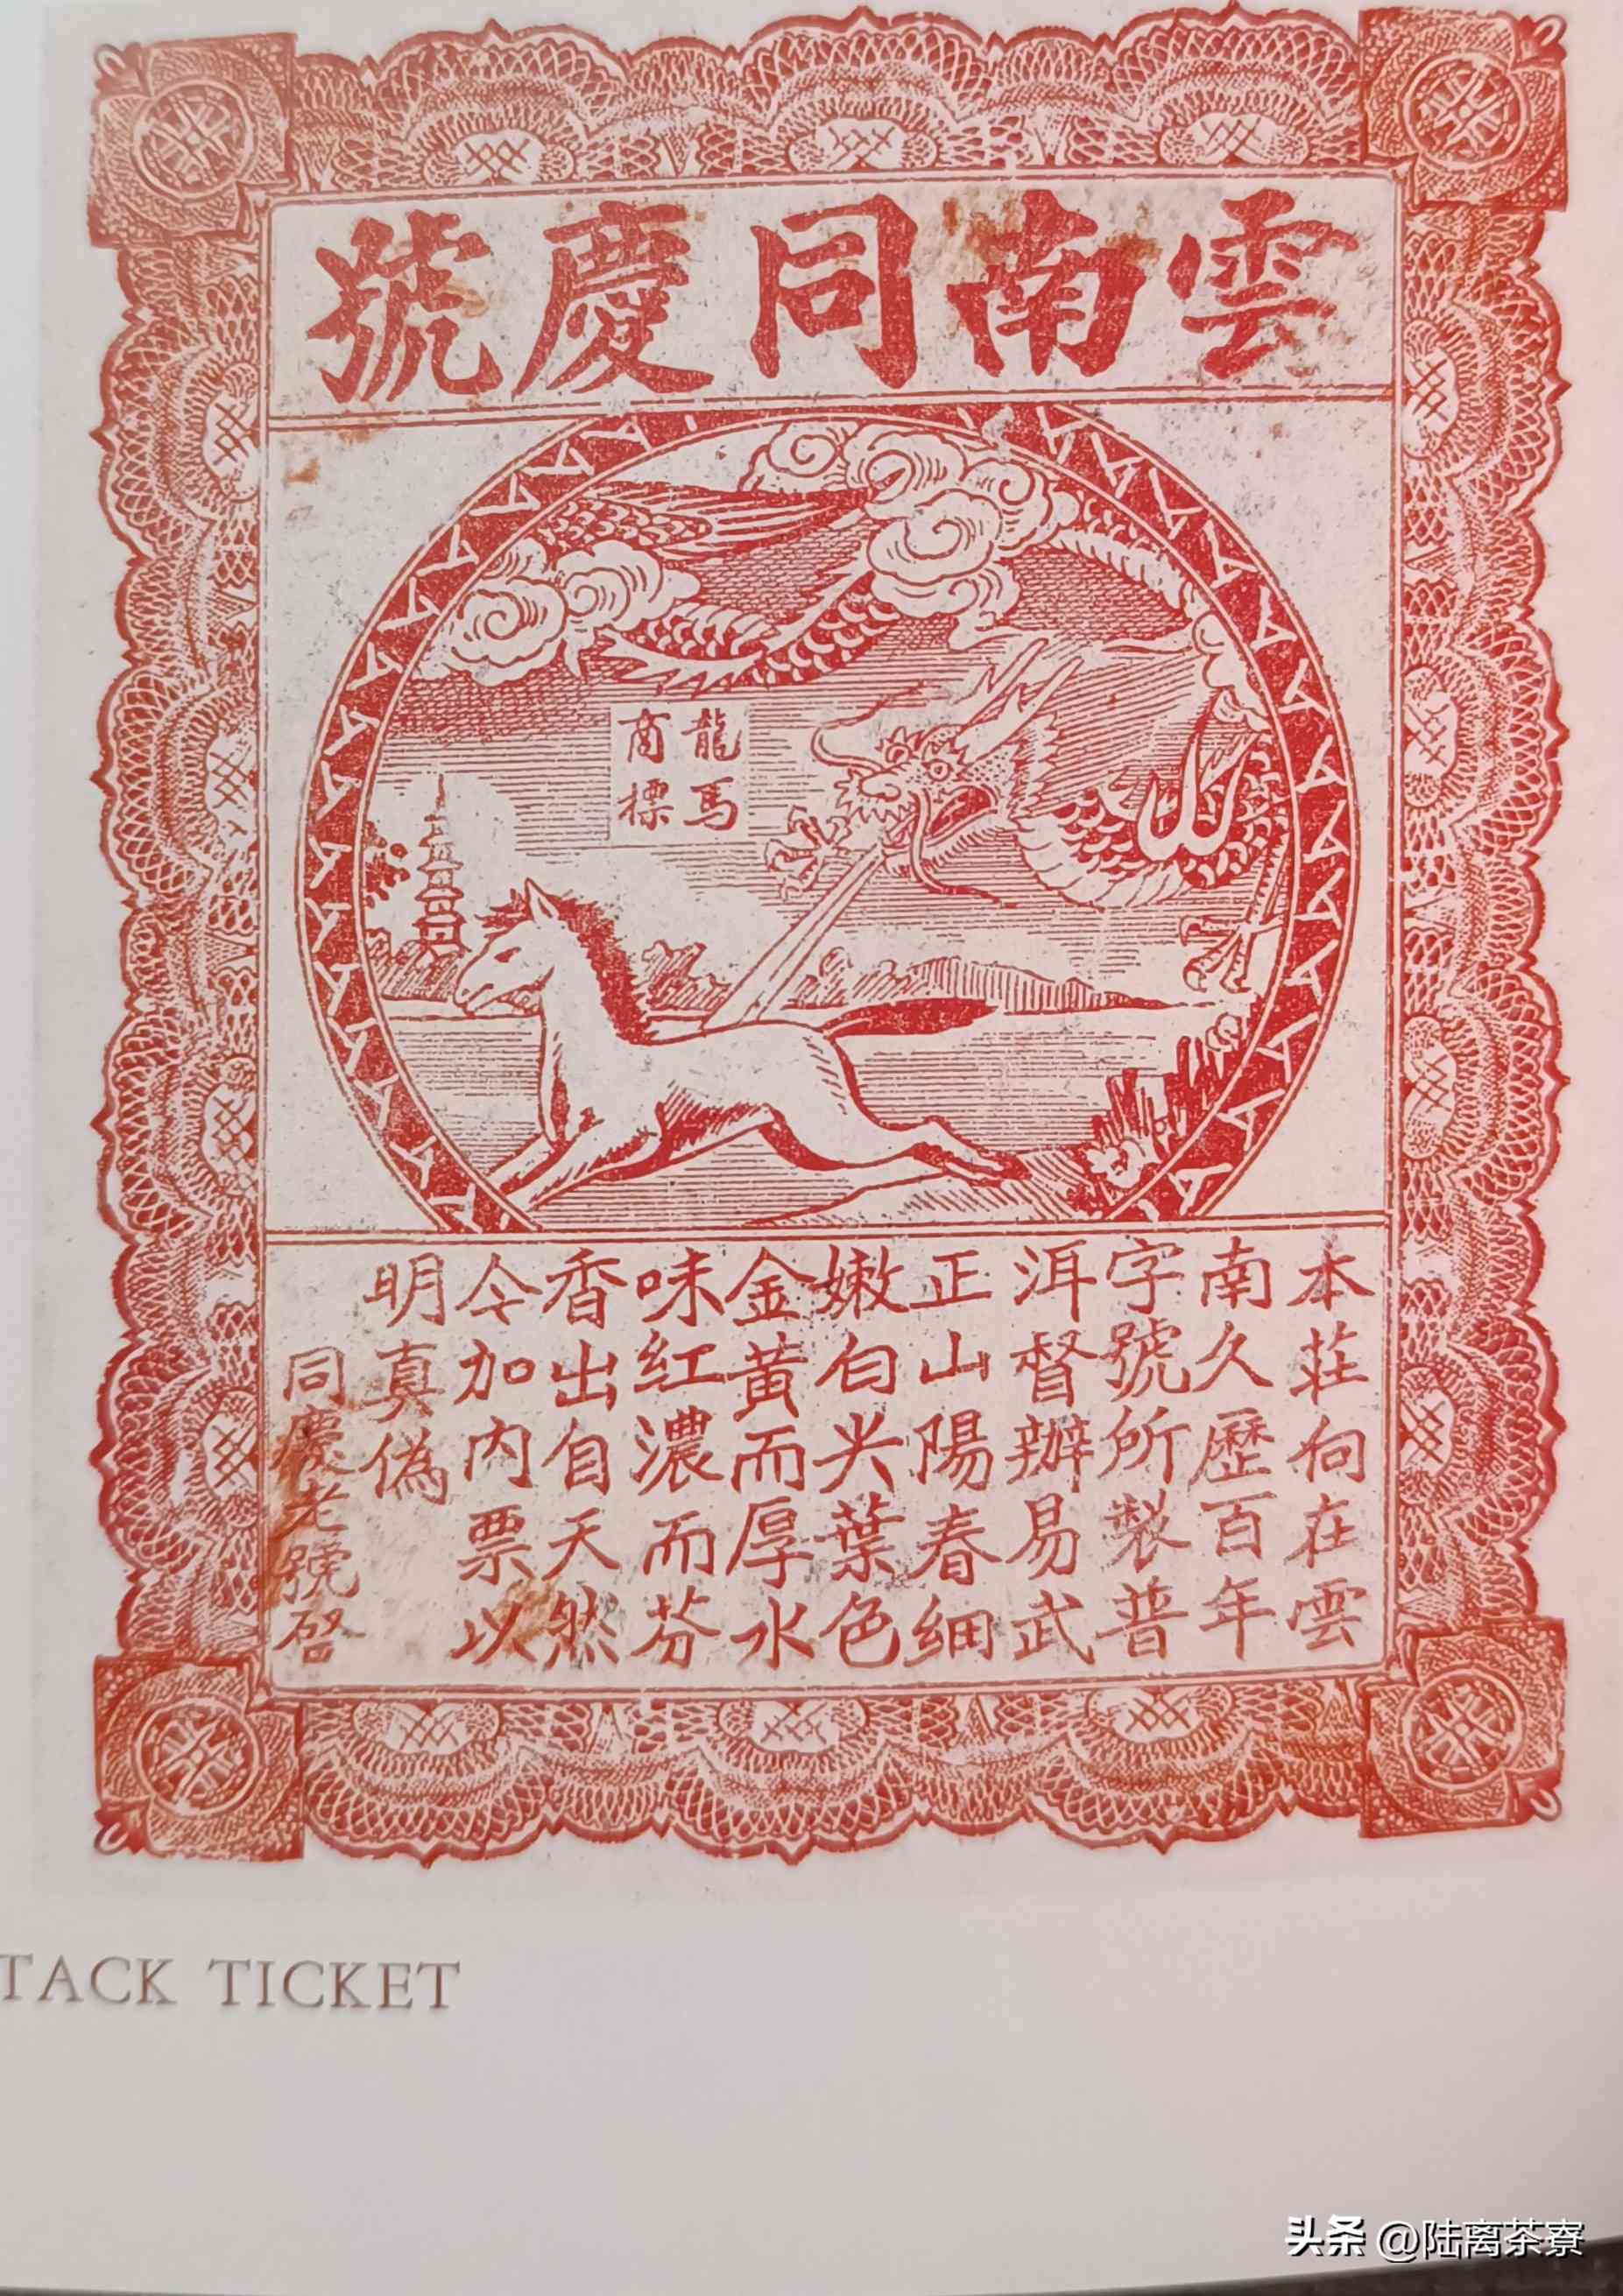 雲南同慶號
龍馬
商標
本莊向在雲
南久歷百年
字號所製普
洱督辦易武
正山陽春細
嫩白尖葉色
金黃而厚水
味紅濃而芬
香出自天然
今加內票以
明真偽
同慶老號啓
TACK TICKET
头条 @陆离茶寮